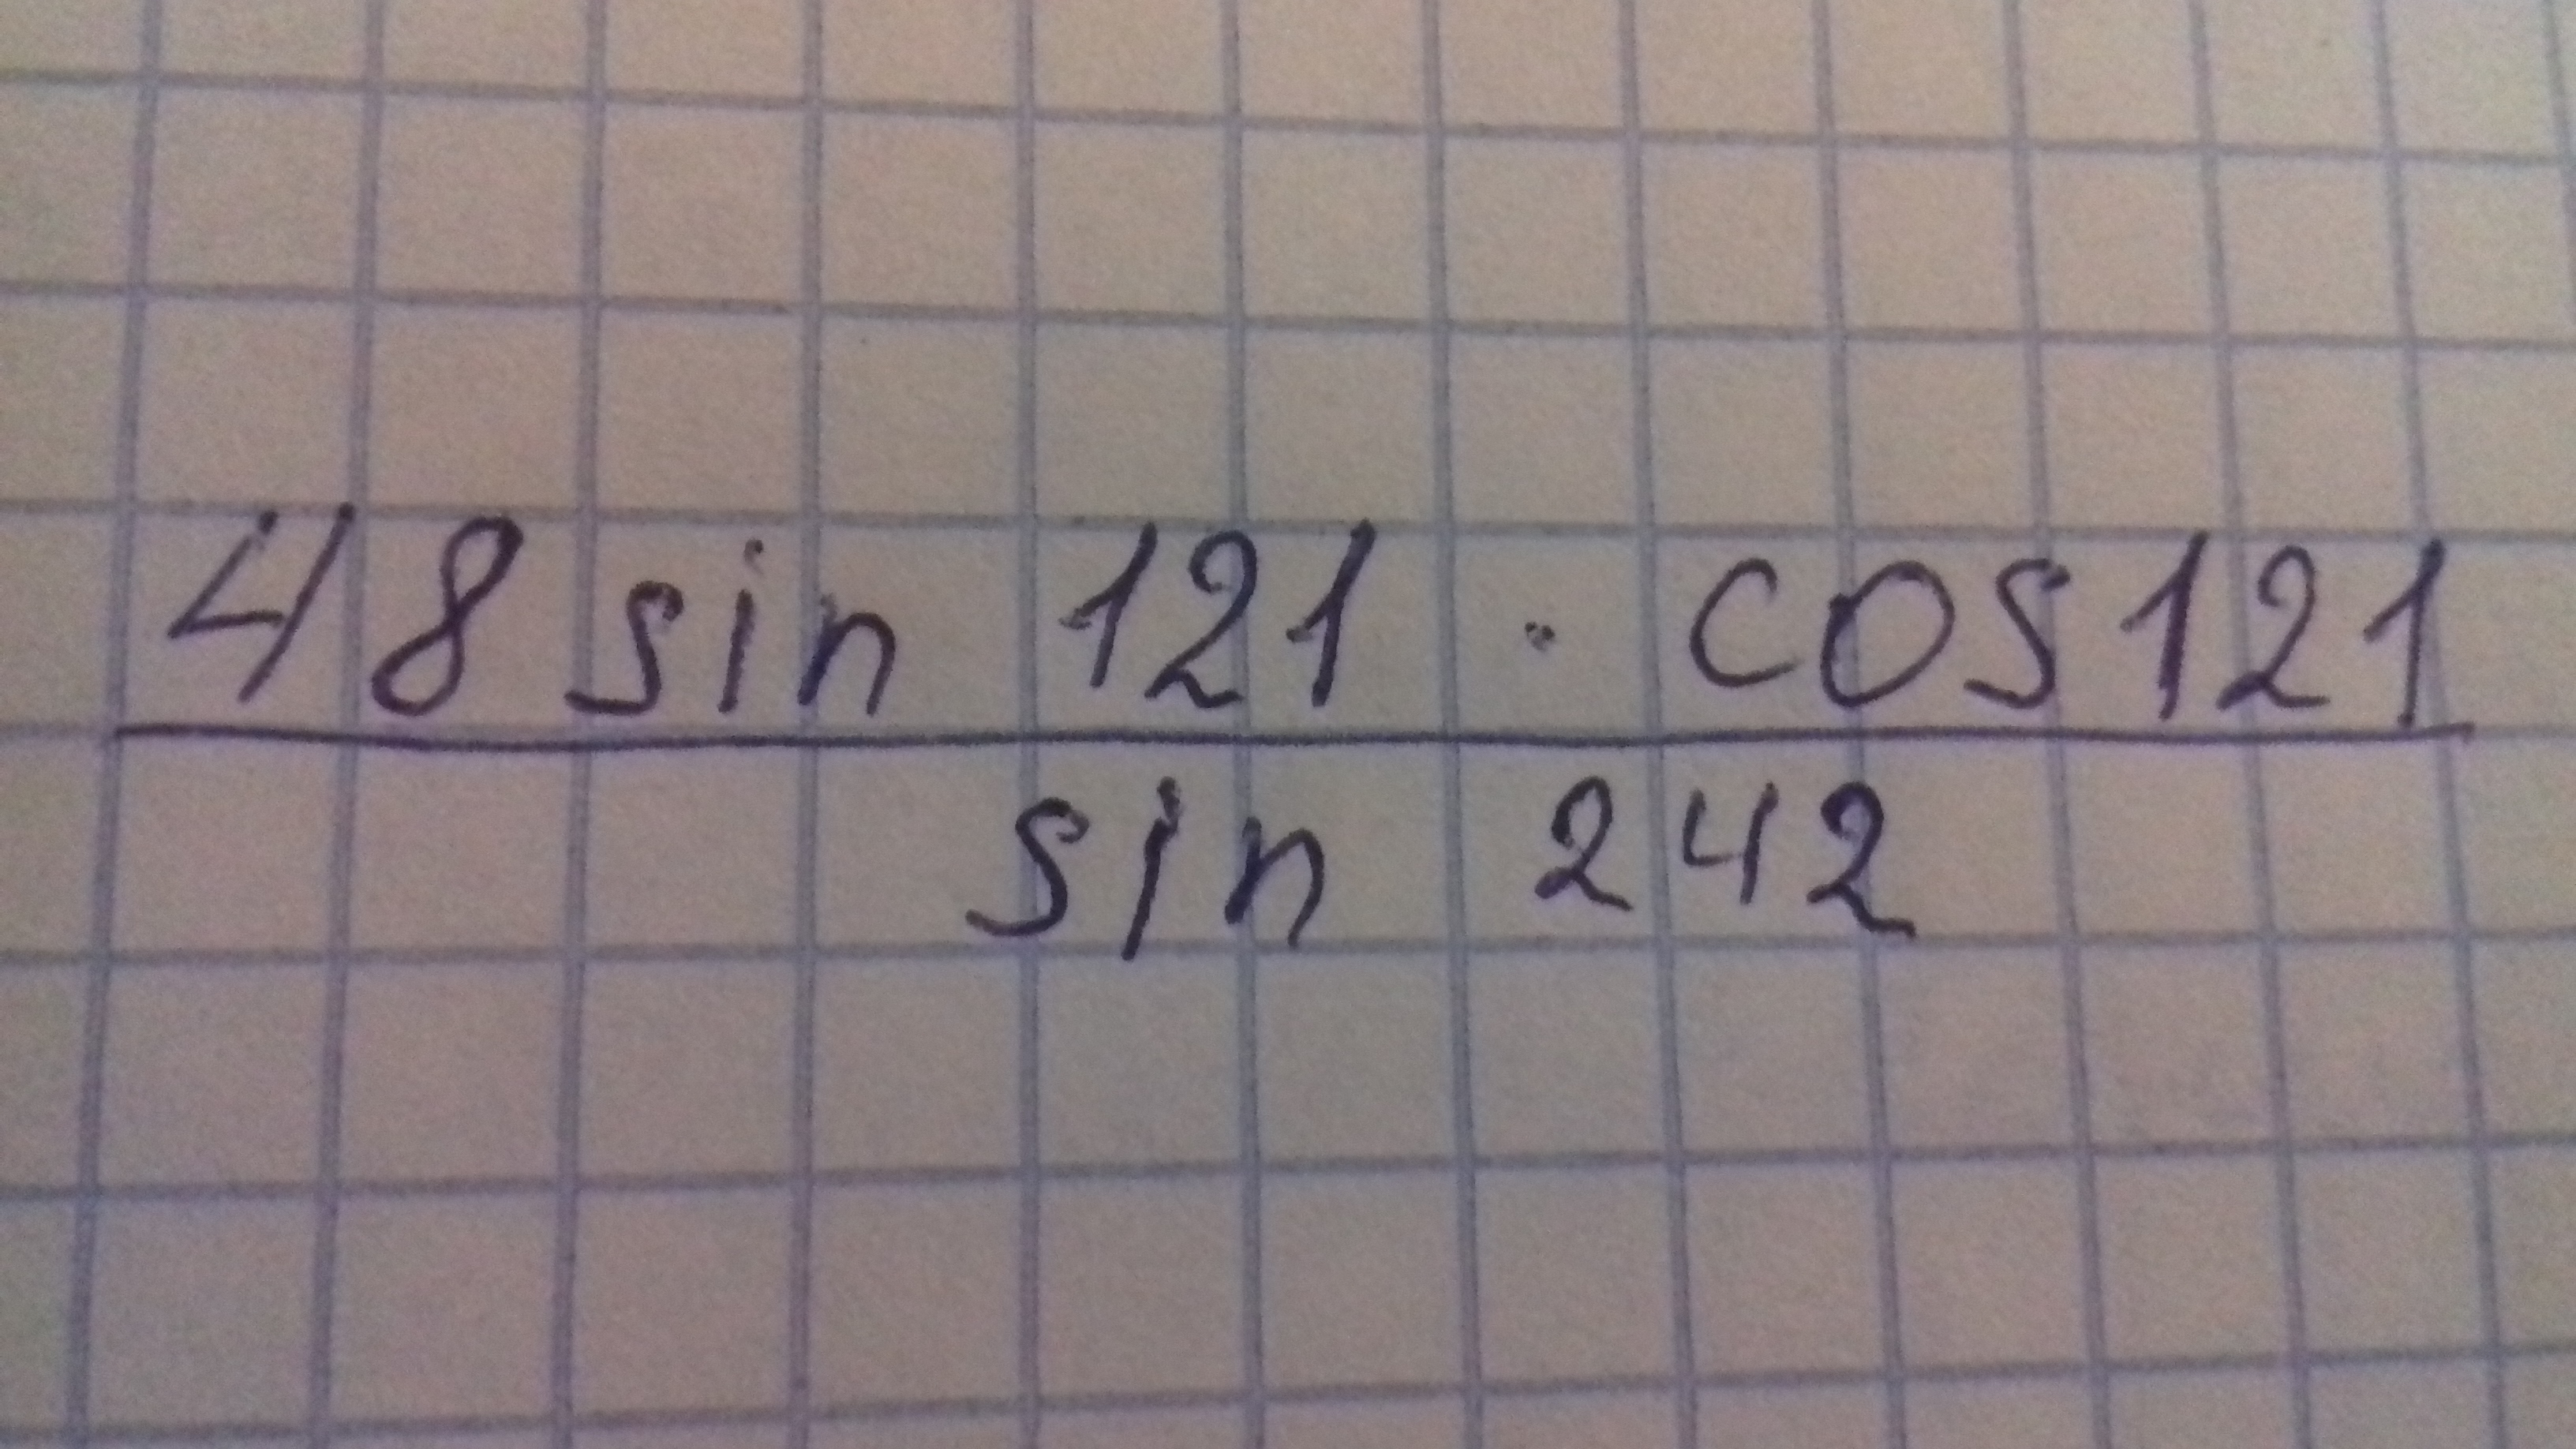 48 sin 121 · cos 121
sin 242